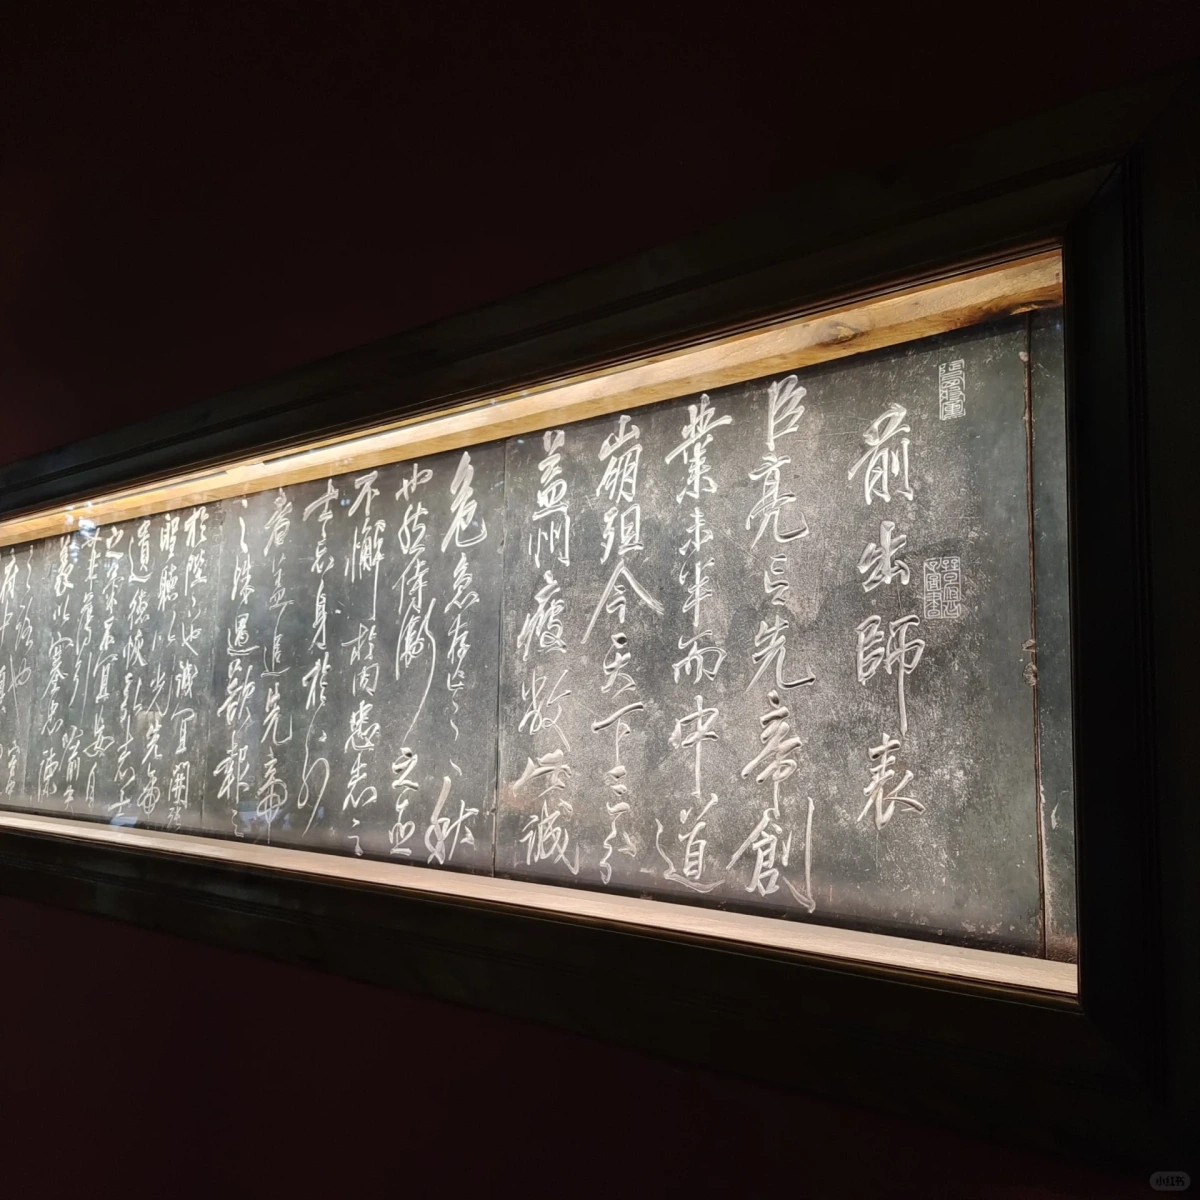 前出師表
臣亮言先帝創
業未半而中道
崩殂今天下三分
益州疲敝此誠
危急存亡之秋
也然侍衛之臣
不懈於内忠志之
士忘身於外
者蓋追先帝
之殊遇欲報之
於陛下也誠宜開張
聖聽以光先帝
遺德恢弘志士
之氣不宜妄自
菲薄引喻失
義以塞忠諫
之路也宫
府中
小红书